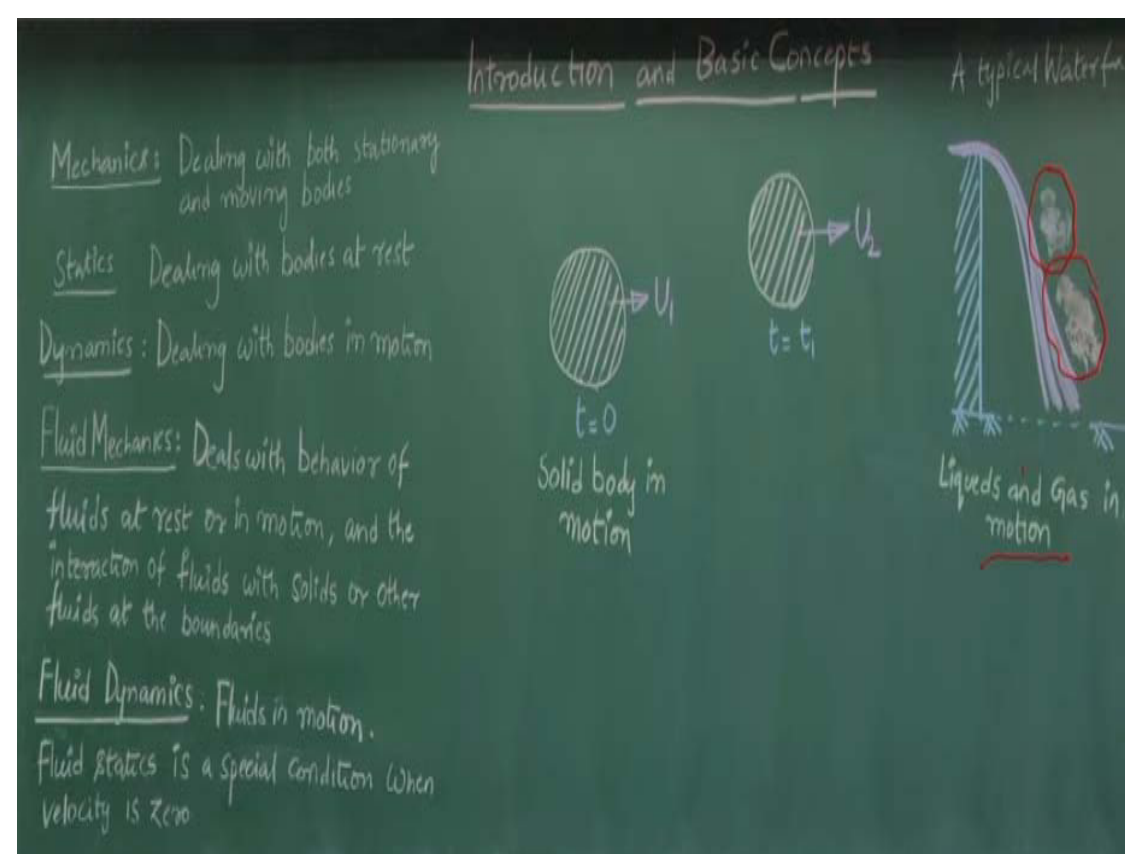 Introduction and Basic Concepts
Mechanics: Dealing with both stationary
and moving bodies
Statics Dealing with bodies at rest
Dynamics: Dealing with bodies in motion
Fluid Mechanics: Deals with behavior of
fluids at rest or in motion, and the
interaction of fluids with solids or other
fluids at the boundaries
Fluid Dynamics: Fluids in motion.
Fluid statics is a special condition when
velocity is zero
U₁
t=0
Solid body in
motion
U₂
t=t₁
A typical
Liqueds and Gas in
motion